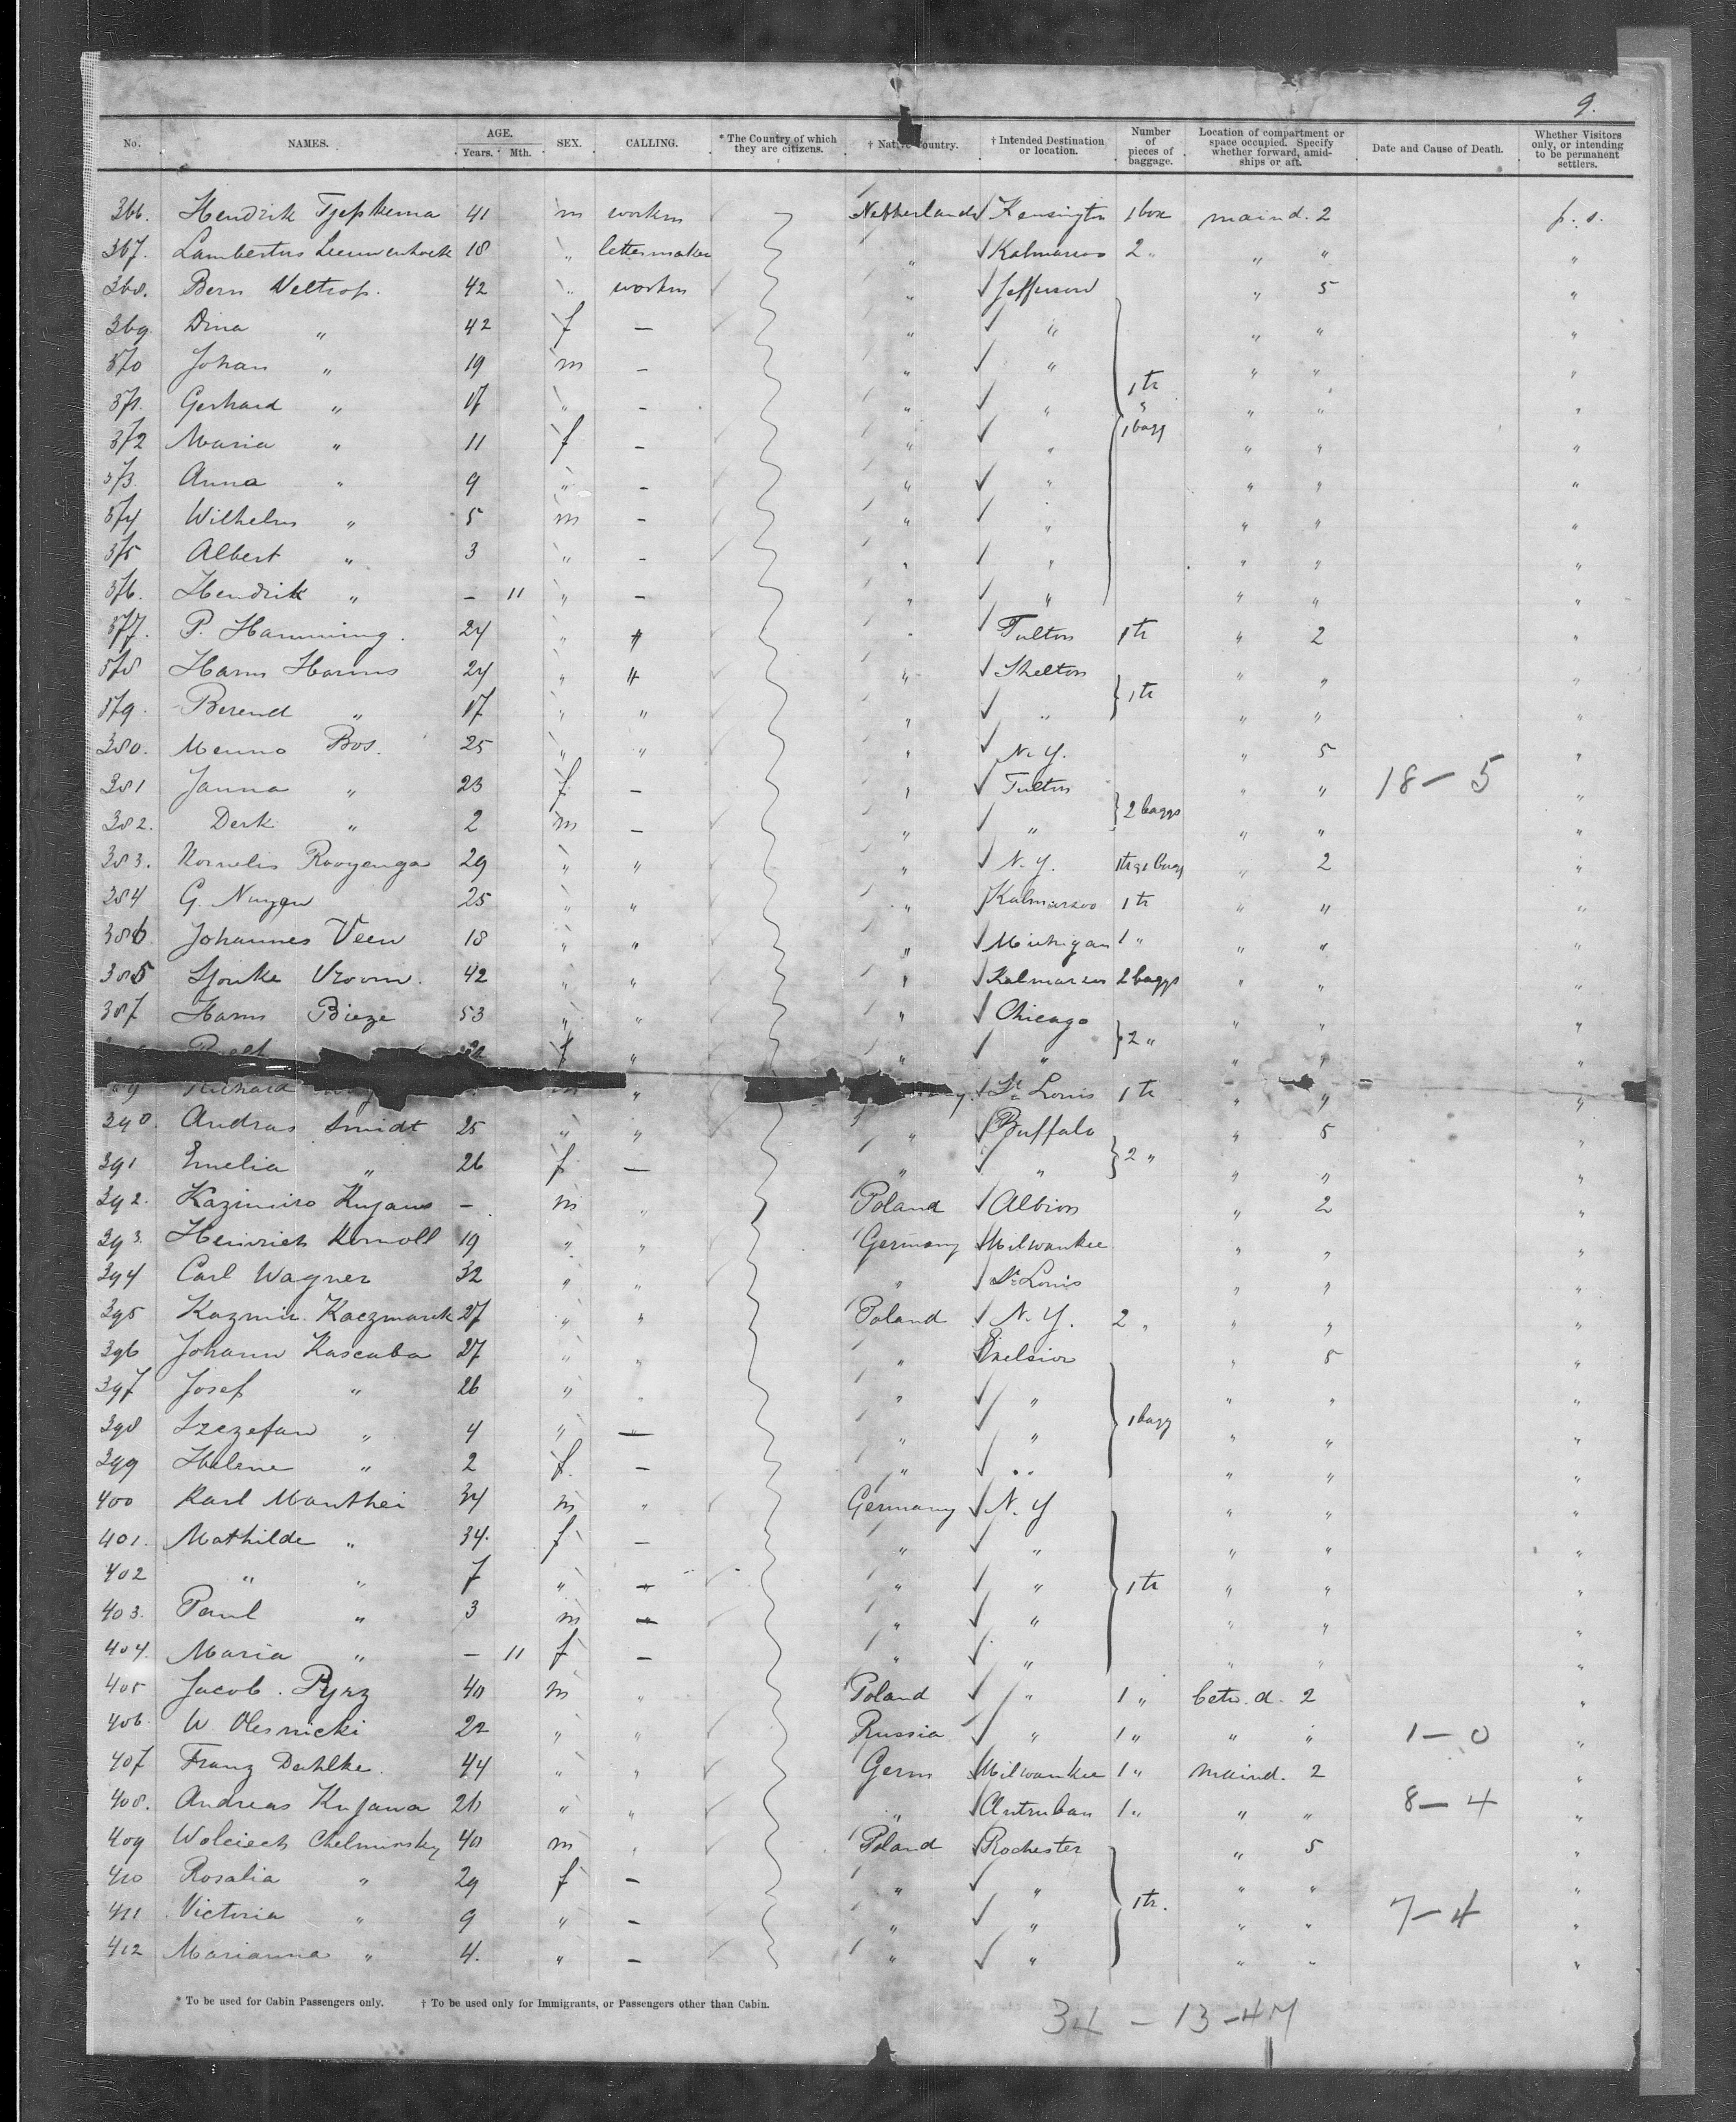 9.
No. NAMES. AGE. Years. Mth. SEX. CALLING. * The Country of which they are citizens. † Native Country. † Intended Destination or location. Number of pieces of baggage. Location of compartment or space occupied. Specify whether forward, amidships or aft. Date and Cause of Death. Whether Visitors only, or intending to be permanent settlers.
366. Hendrik Tjepkema 41 m workm Netherlands Kensington 1 box maind. 2 p. s.
367. Lambertus Leeuwenhoek 18 " lettermaker " Kalmazoo 2 " " " "
368. Bern Veltrop. 42 " workm " Jefferson " 5 "
369. Dina " 42 f — " " " " "
370 Johan " 19 m — " " " " "
371. Gerhard " 17 " — " " 1 tr " " "
372 Maria " 11 f — " " 1 bagg " " "
373. Anna " 9 " — " " " " "
374 Wilhelm " 5 m — " " " " "
375 Albert " 3 " — " " " " "
376. Hendrik " — 11 " — " " " " "
377. P. Hamming. 24 " " " Fulton 1 tr " 2 "
378 Harm Harms 24 " " " Shelton " " "
379. Berend " 17 " " " " 1 tr " " "
380. Menno Bos. 25 " " " N. Y. " 5 "
381 Janna " 23 f — " Fulton " " 18 — 5 "
382. Derk " 2 m — " " 2 baggs " " "
383. Kornelis Rooyenga 29 " " " N. Y. 1 tr & 1 bagg " 2 "
384 G. Nuyen 25 " " " Kalmazoo 1 tr " " "
386 Johannes Veen 18 " " " Michigan 1 " " " "
385 Sjouke Vroom. 42 " " " Kalmazoo 2 baggs " " "
387 Harm Bieze 53 " " " Chicago " " "
f " " " 2 " " " "
Richard m " St. Louis 1 tr " " "
390. Andras Smidt 25 " " " Buffalo " 5 "
391 Emelia " 26 f — " " 2 " " " "
392. Kazimiro Kujawo — m " Poland Albion " 2 "
393. Heinrich Kornoll 19 " " Germany Milwaukee " " "
394 Carl Wagner 32 " " " St. Louis " " "
395 Kazmir. Kaczmarek 27 " " Poland N. Y. 2 " " " "
396 Johann Kascuba 27 " " " Exelsior " 5 "
397 Josef " 26 " " " " " " "
398 Szczefan " 4 " — " " 1 bagg " " "
399 Helene " 2 f. — " " " " "
400 Karl Manthei 34 m " Germany N. Y " " "
401. Mathilde " 34. f — " " " " "
402 " " 7 " — " " 1 tr " " "
403. Paul " 3 m — " " " " "
404. Maria " — 11 f — " " " " "
405 Jacob. Pyrz 40 m " Poland " 1 " betw. d. 2 "
406 W. Olesnicki 22 " " Russia " 1 " " " 1 — 0 "
407 Franz Dahlke. 44 " " Germ Milwaukee 1 " maind. 2 "
408. Andreas Kujawa 26 " " " 1 " " " 8 — 4 "
409 Wolciech Chelminsky 40 m " Poland Rochester " 5 "
410 Rosalia " 29 f — " " " " "
411 Victoria " 9 " — " " 1 tr. " " 7 — 4 "
412 Marianna " 4. " — " " " " "
* To be used for Cabin Passengers only. † To be used only for Immigrants, or Passengers other than Cabin.
34 — 13 — 47